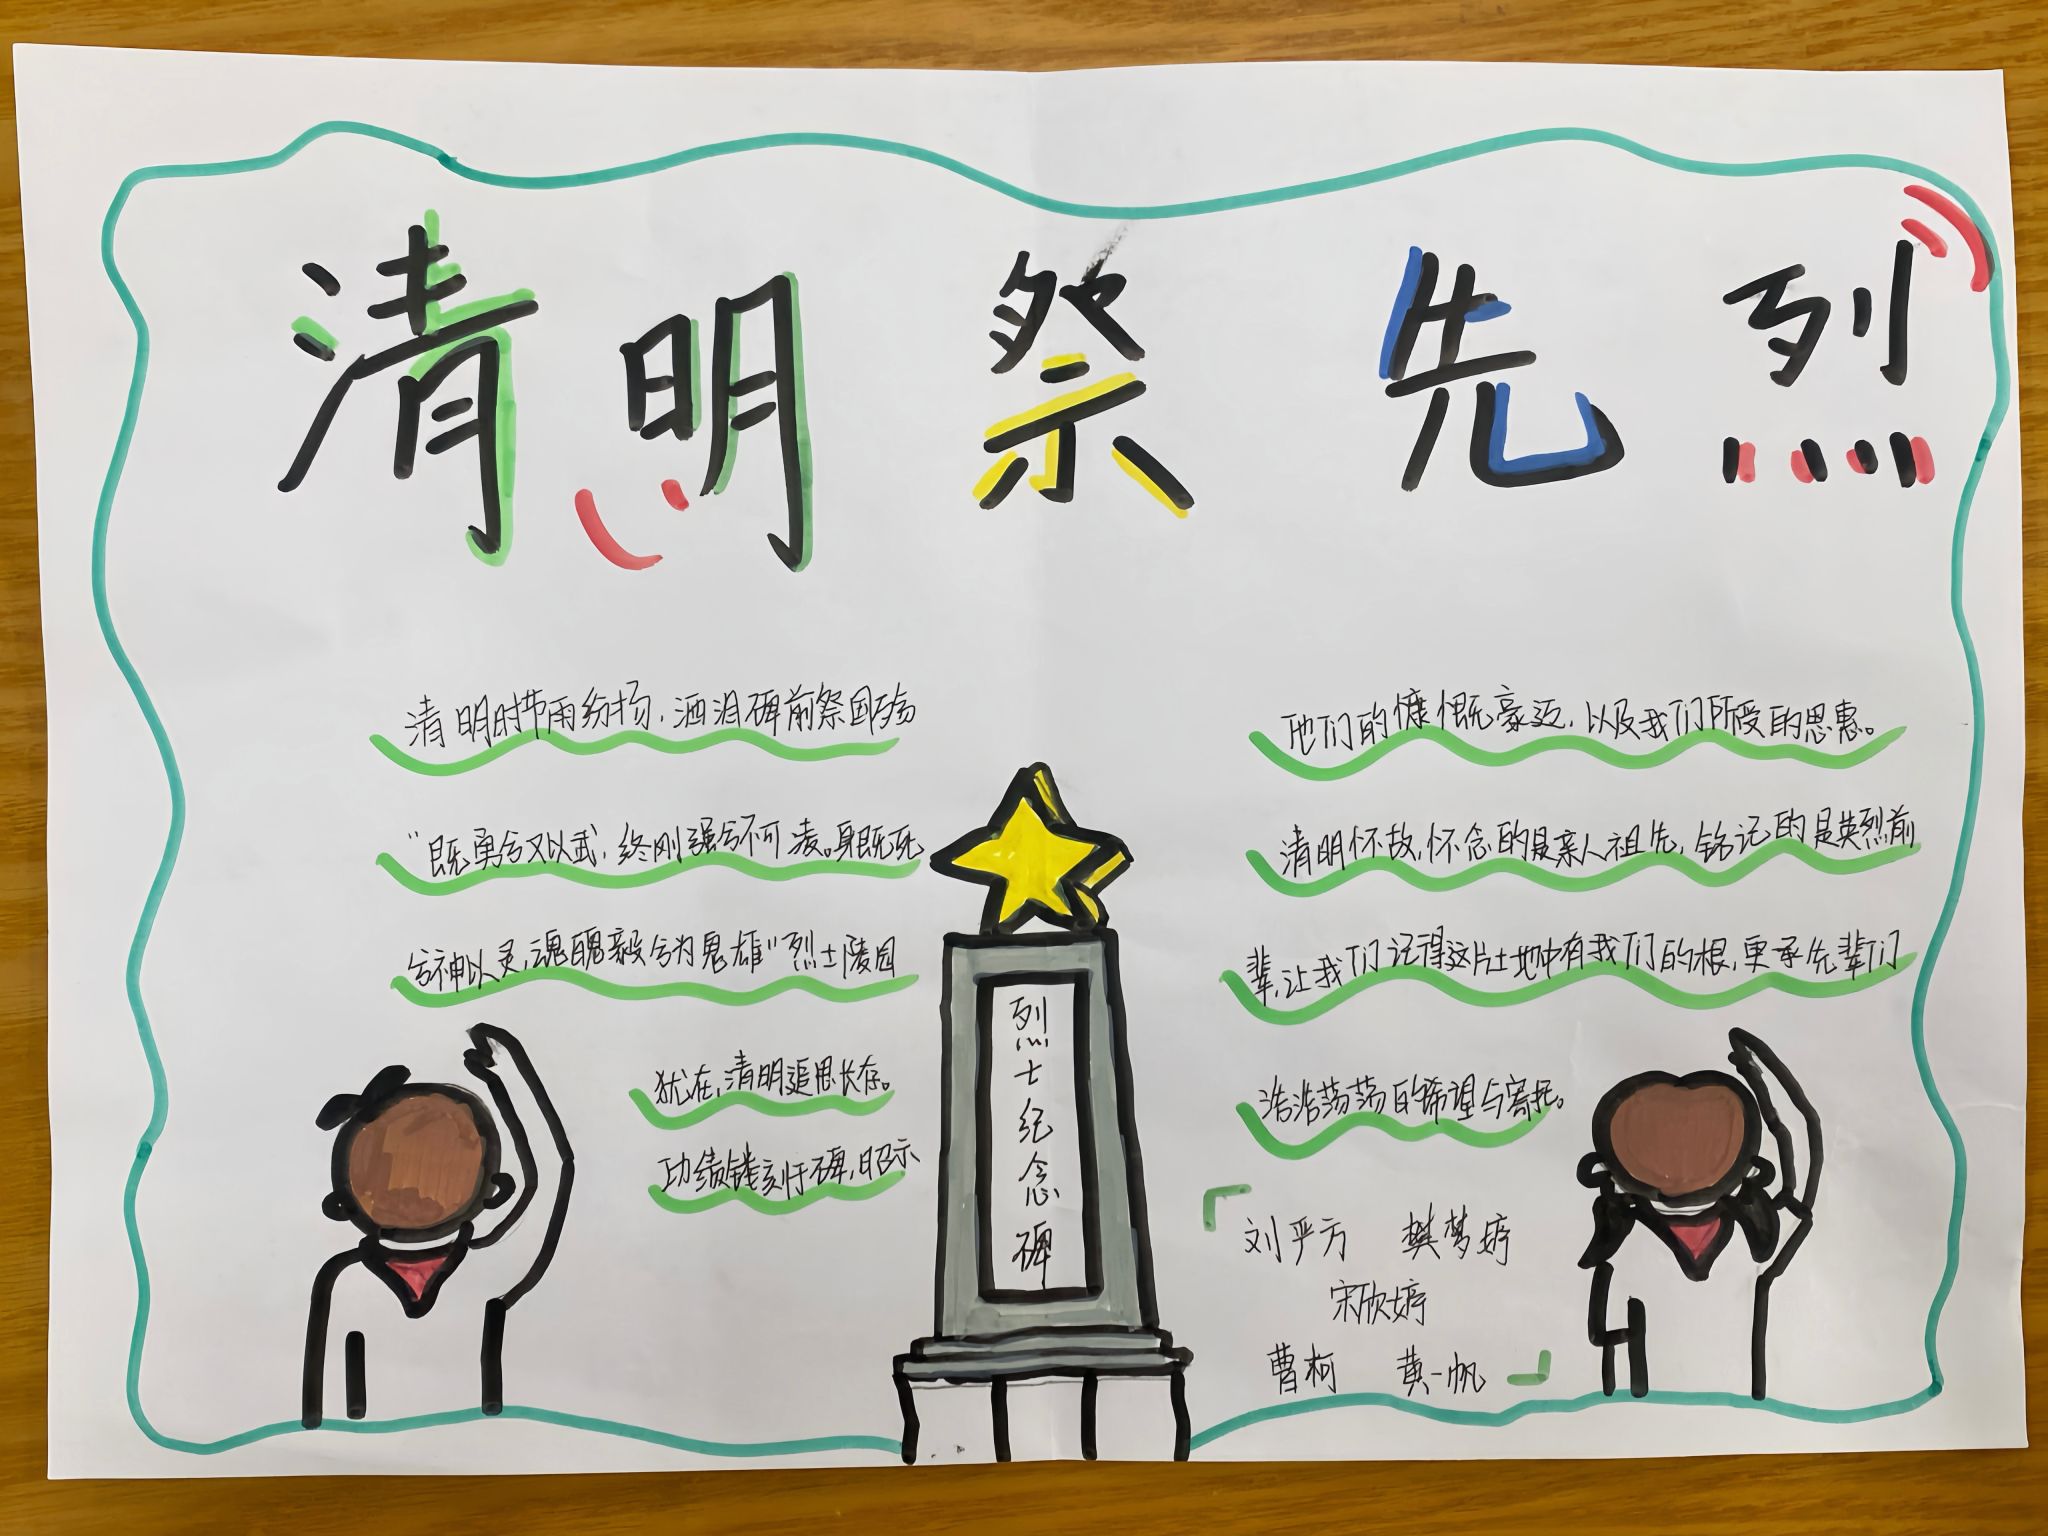 清明祭先烈
清明时节雨纷扬，洒泪碑前祭国殇
“既勇兮又以武，终刚强兮不可凌。身既死
兮神以灵，魂魄毅兮为鬼雄”烈士陵园
犹在，清明追思长存。
功绩镌刻于碑，昭示
烈士纪念碑
他们的慷慨豪迈，以及我们所受的恩惠。
清明怀故，怀念的是亲人祖先，铭记的是英烈前
辈，让我们记得这片土地中有我们的根，更承先辈们
浩浩荡荡的希望与寄托。
刘严方 樊梦婷
宋欣婷
曹柯 黄一帆